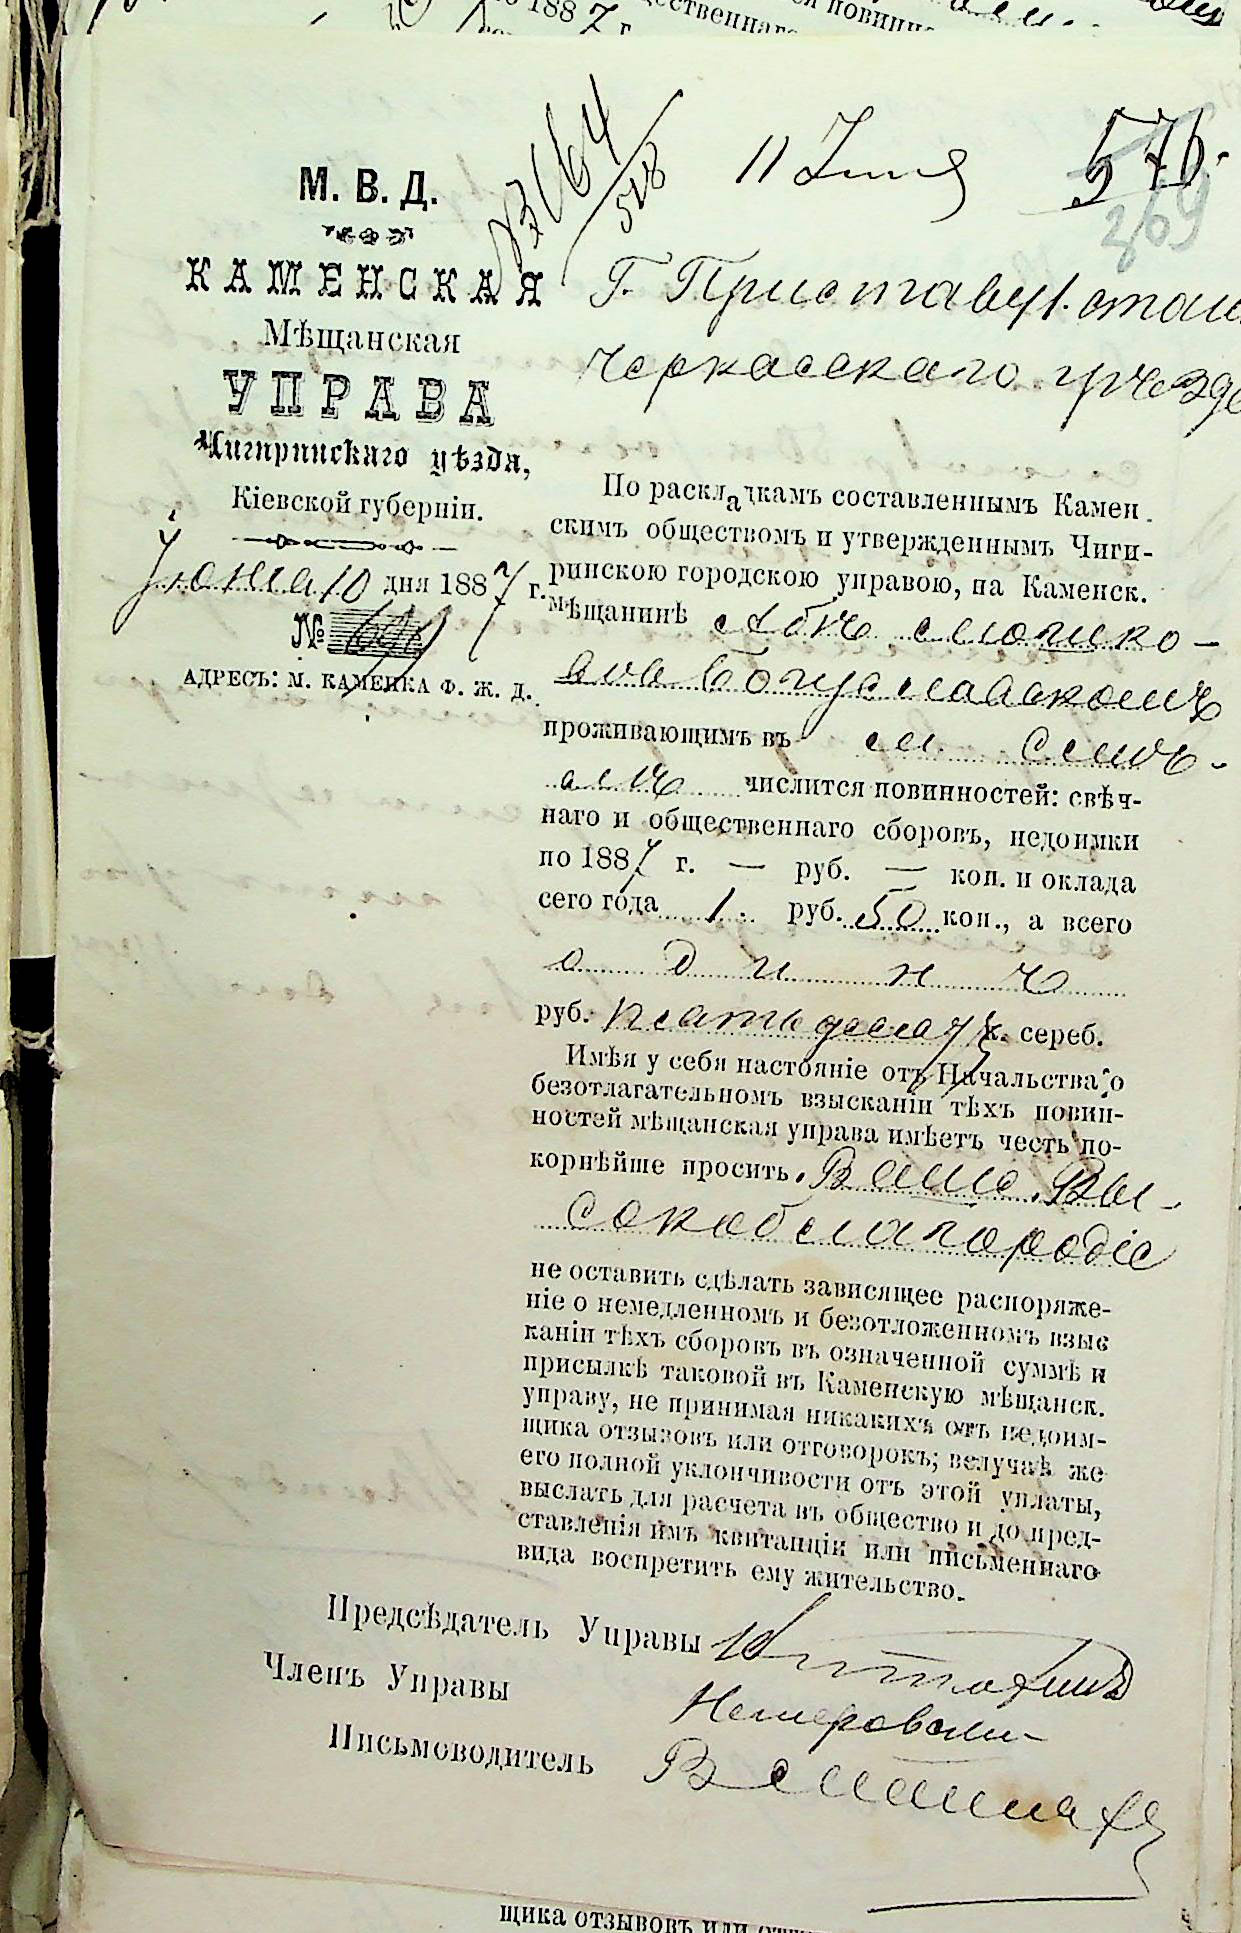 № 3164/518
11 Июня
576.
369
М. В. Д.
КАМЕНСКАЯ
Мѣщанская
УПРАВА
Чигиринскаго уѣзда,
Кіевской губерніи.
Іюня 10 дня 1887 г.
№
АДРЕСЪ: М. КАМЕНКА Ф. Ж. Д.
Г. Приставу 1. стан
Черкасскаго
По раскладкамъ составленнымъ Камен.
скимъ обществомъ и утвержденнымъ Чиги-
ринскою городскою управою, на Каменск.
мѣщанинѣ
Богуславскомъ
проживающимъ въ м Смѣ-
лѣ числится повинностей: свѣч-
наго и общественнаго сборовъ, недоимки
по 1887 г. — руб. — коп. и оклада
сего года 1. руб. 50 коп., а всего
одинъ
руб. пятьдесят к. сереб.
Имѣя у себя настояніе отъ Начальства о
безотлагательномъ взысканіи тѣхъ повин-
ностей мѣщанская управа имѣетъ честь по-
корнѣйше просить Ваше Вы-
сокоблагородіе
не оставить сдѣлать зависящее распоряже-
ніе о немедленномъ и безотложенномъ взыс
каніи тѣхъ сборовъ въ означенной суммѣ и
присылкѣ таковой въ Каменскую мѣщанск.
управу, не принимая никакихъ отъ недоим-
щика отзывовъ или отговорокъ; вслучаѣ же
его полной уклончивости отъ этой уплаты,
выслать для расчета въ общество и до пред-
ставленія имъ квитанціи или письменнаго
вида воспретить ему жительство.
Предсѣдатель Управы
Членъ Управы
Письмоводитель
щика отзывовъ или